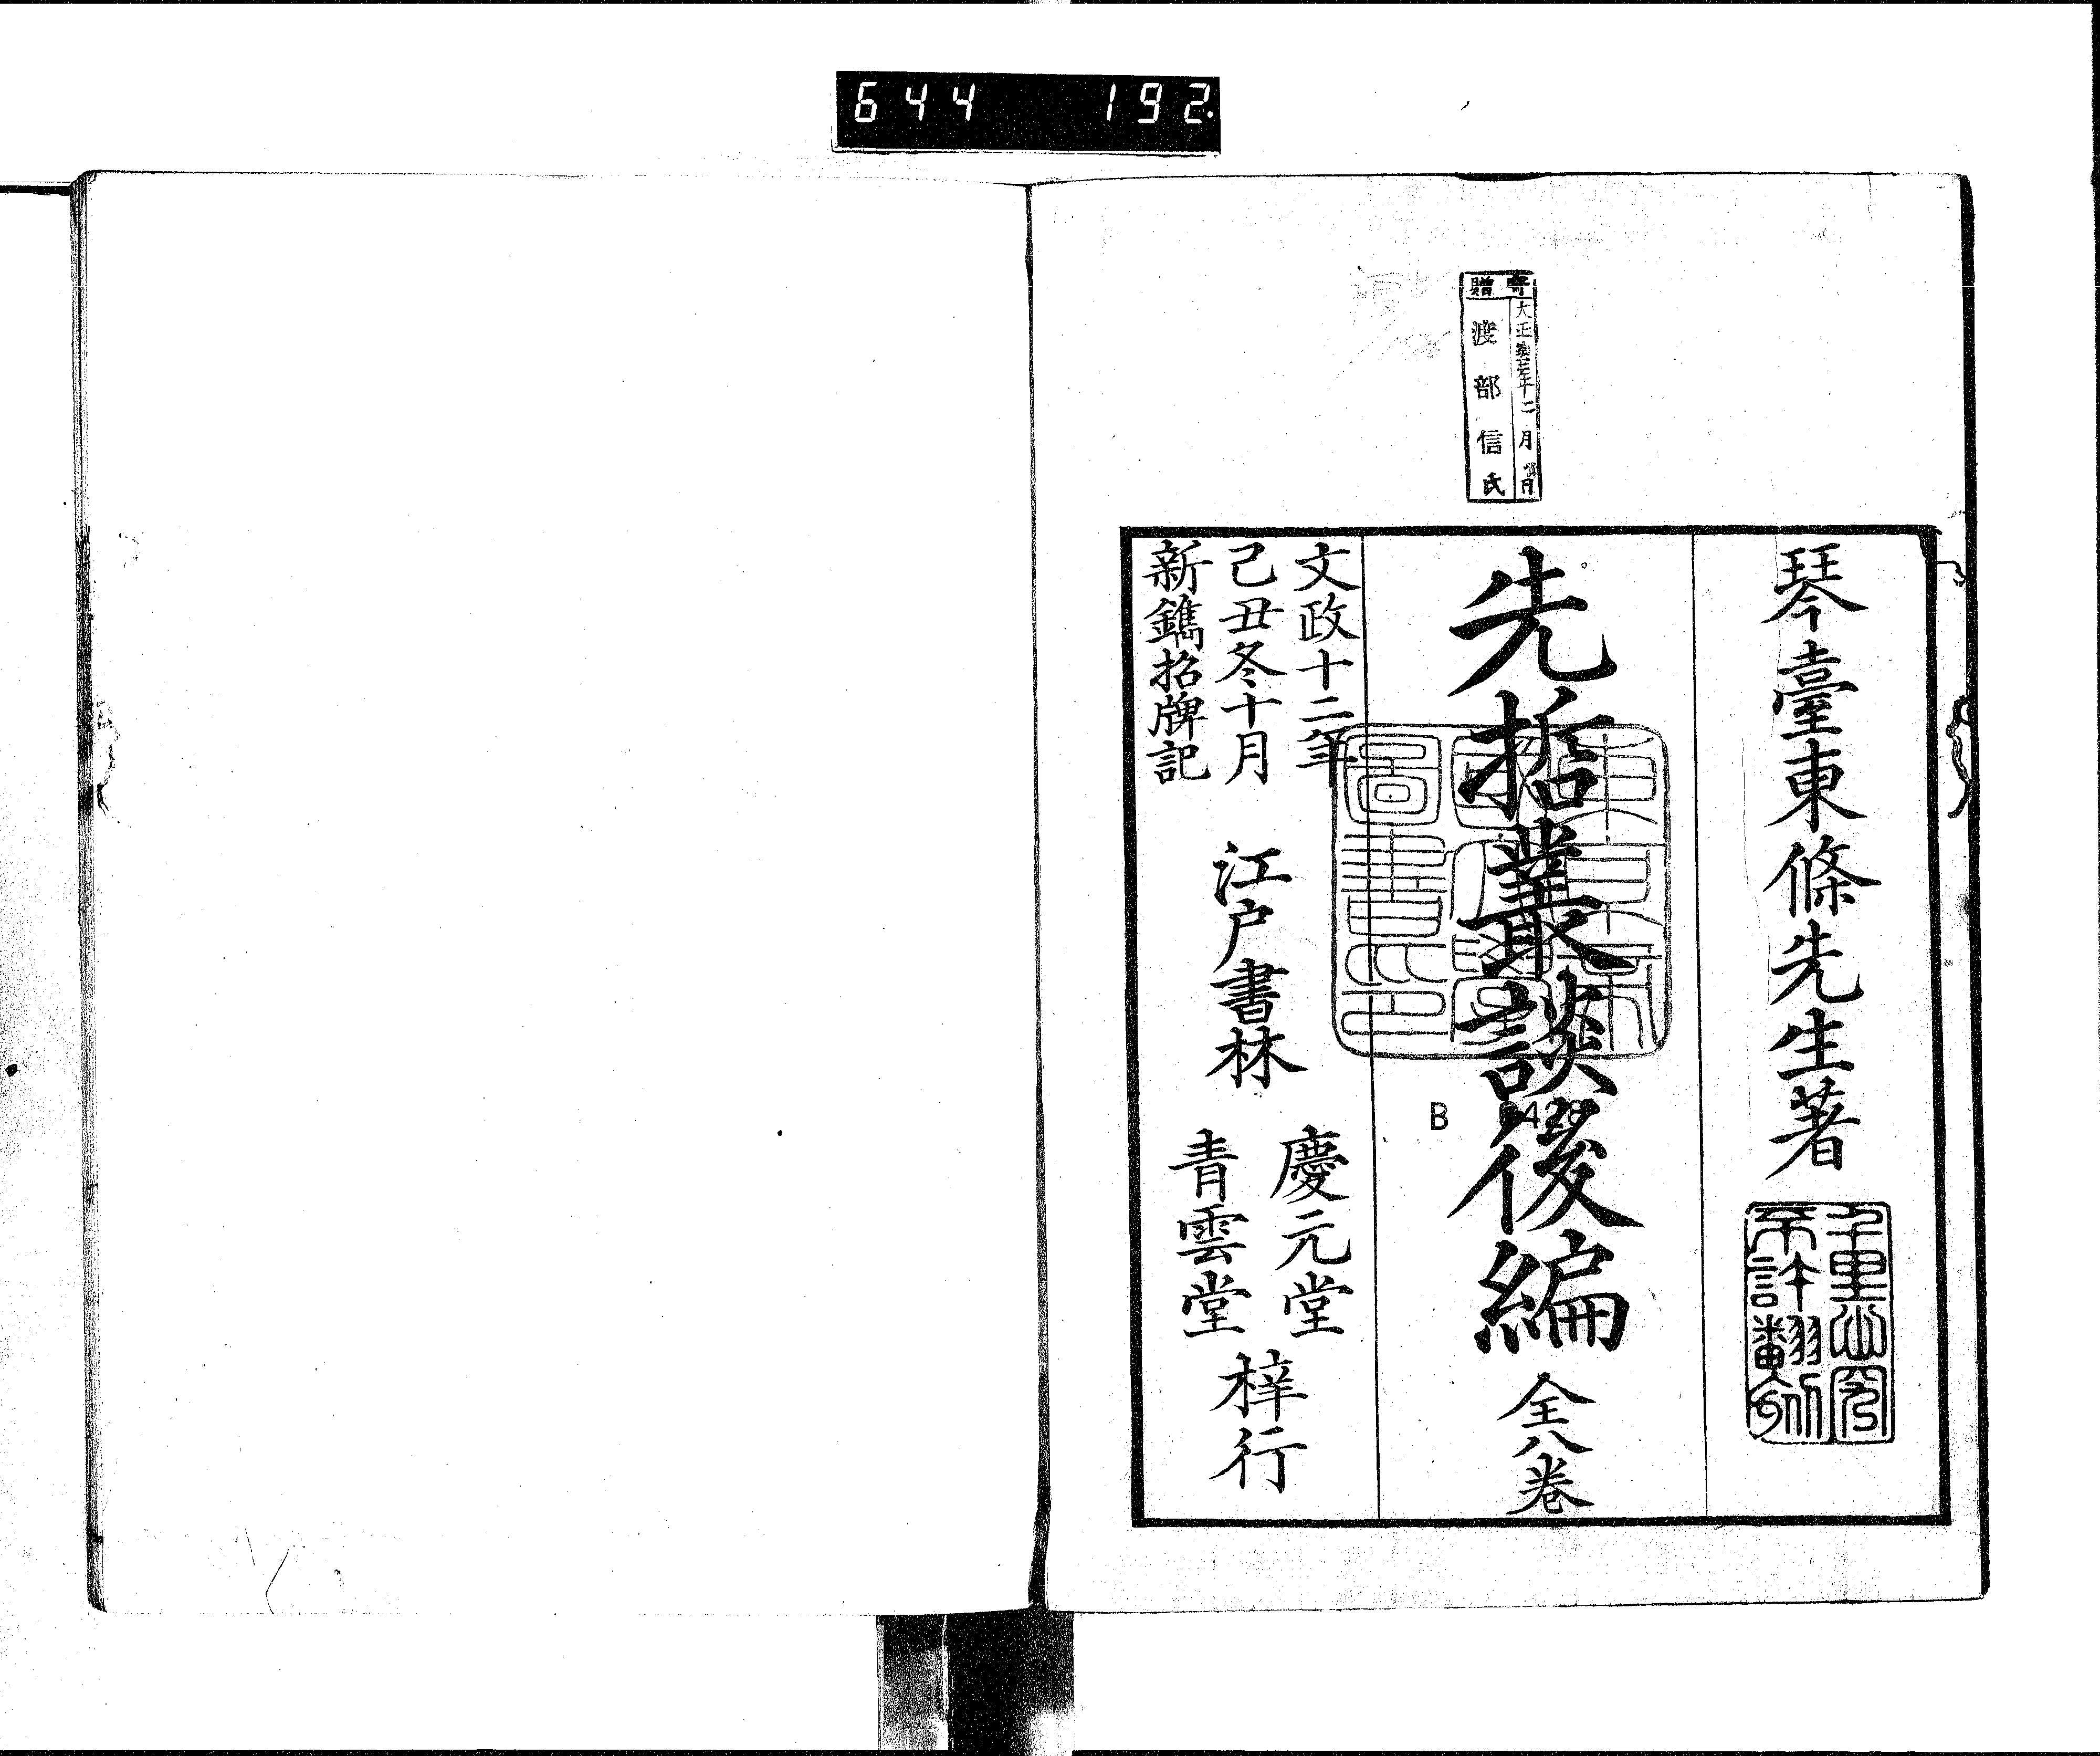 644 192.
寄贈
大正
年十二月
渡部信氏
琴臺東條先生著
千里必究
不許翻刻
先哲叢談後編 全八卷
B
文政十二年
己丑冬十月
新鐫招牌記
江戸書林
慶元堂
青雲堂
梓行